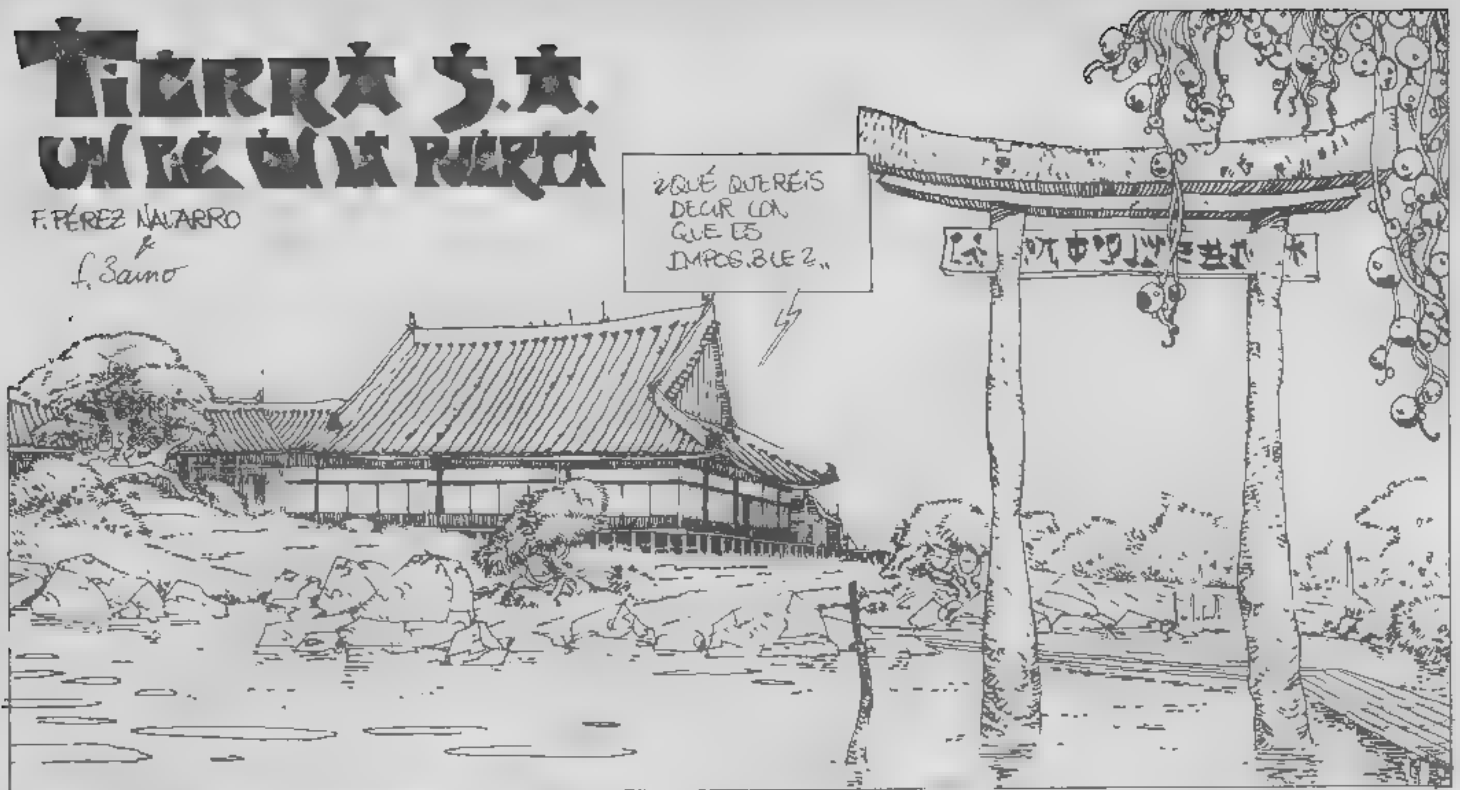 TIERRA S.A.
UN PIE EN LA PUERTA
F. PÉREZ NAVARRO
&
¿QUÉ QUERÉIS
DECIR CON
QUE ES
IMPOSIBLE?..